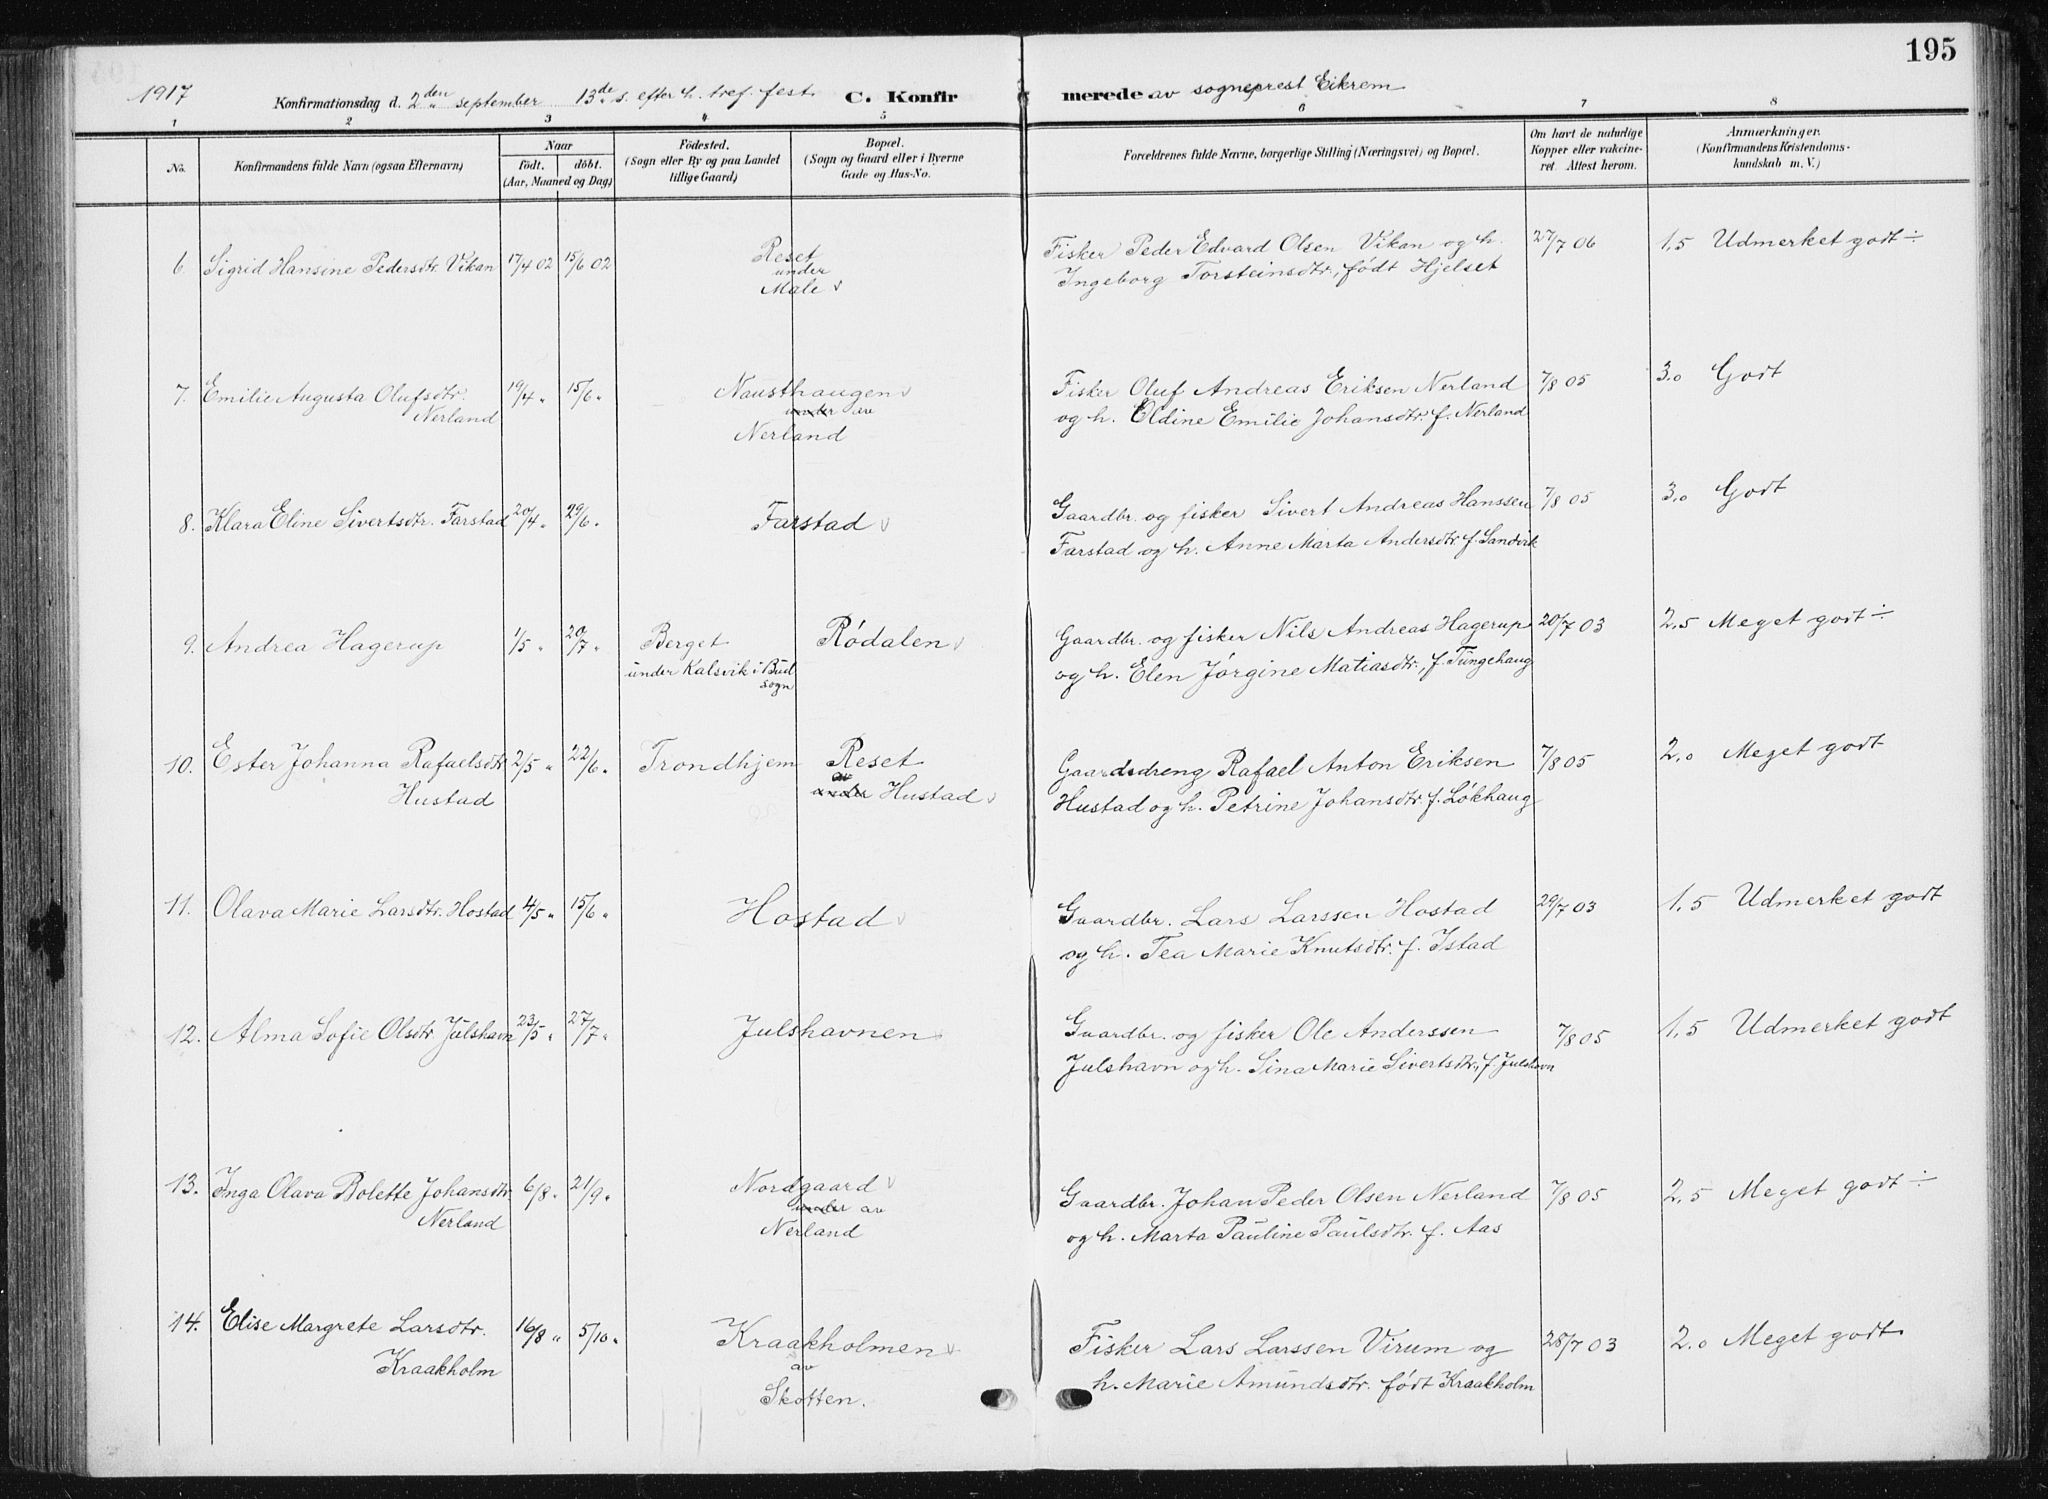 195
1917 Konfirmationsdag d. 2den september 13de s. efter h. tref. fest C. Konfirmerede av sogneprest Eikrem
1 2 3 4 5 6 7 8
No. Konfirmandens fulde Navn (ogsaa Efternavn) Naar født. døbt. (Aar, Maaned og Dag) Fødested. (Sogn eller By og paa Landet tillige Gaard) Bopæl. (Sogn og Gaard eller i Byerne Gade og Hus-No. Forældrenes fulde Navne, borgerlige Stilling (Næringsvei) og Bopæl. Om havt de naturlige Kopper eller vakcineret. Attest herom. Anmærkninger. (Konfirmandens Kristendomskundskab m. V.)
6. Sigrid Hansine Pedersdtr. Vikan 17/4 02 15/6 02 Reset under Male v Fisker Peder Edvard Olsen Vikan og h. 27/7 06 1,5 Udmerket godt ÷
Ingeborg Torsteinsdtr., født Hjelset
7. Emilie Augusta Olufsdtr. 19/4 " 15/6 " Nausthaugen v Fisker Oluf Andreas Eriksen Nerland 7/8 05 3.0 Godt
Nerland under av Nerland og h. Eldine Emilie Johansdtr. f. Nerland
8. Klara Eline Sivertsdtr. Farstad 20/4 " 29/6 " Farstad v Gaardbr. og fisker Sivert Andreas Hanssen 7/8 05 3.0 Godt
Farstad og h. Anne Marta Andersdtr. f. Sandvik
9. Andrea Hagerup 1/5 " 20/7 " Berget Rödalen v Gaardbr. og fisker Nils Andreas Hagerup 20/7 03 2,5 Meget godt ÷
under Kalsvik i Bud sogn og h. Elen Jørgine Matiasdtr., f. Tungehaug
10. Ester Johanna Rafaelsdtr 2/5 " 22/6 " Trondhjem Reset Gaardsdreng Rafael Anton Eriksen 7/8 05 2.0 Meget godt
Hustad under av Hustad v Hustad og h. Petrine Johansdtr. f. Løkhaug
11. Olava Marie Larsdtr. Hostad 4/5 " 15/6 " Hostad v Gaardbr. Lars Larssen Hostad 29/7 03 1,5 Udmerket godt
og h. Tea Marie Knutsdtr. f. Istad
12. Alma Sofie Olsdtr. Julshavn 23/5 " 27/7 " Julshavnen v Gaardbr. og fisker Ole Anderssen 7/8 05 1,5 Udmerket godt
Julshavn og h. Sina Marie Sivertsdtr., f. Julshavn
13. Inga Olava Bolette Johansdtr. 6/8 " 21/9 " Nordgaard v Gaardbr. Johan Peder Olsen Nerland 7/8 05 2,5 Meget godt ÷
Nerland under av Nerland og h. Marta Pauline Paulsdtr. f. Aas
14. Elise Margrete Larsdtr. 16/8 " 5/10 " Kraakholmen v Fisker Lars Larssen Virum og 28/7 03 2.0 Meget godt
Kraakholm av Skotten. h. Marie Amundsdtr. født Kraakholm